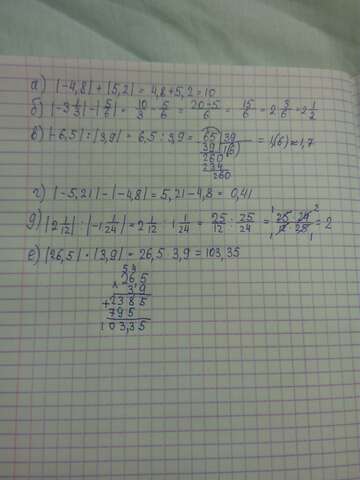 а) |-4,8| + |5,2| = 4,8+5,2=10
б) |-3 1/3| - |5/6| = 10/3 - 5/6 = 20-5/6 = 15/6 = 2 3/6 = 2 1/2
в) |-6,5| : |3,9| = 6,5 : 3,9 = 65 | 39 = 1,(6) ≈ 1,7
39 | 1,(6)
260
234
260
г) |-5,21| - |-4,8| = 5,21-4,8 = 0,41
д) |2 1/12| : |-1 1/24| = 2 1/12 : 1 1/24 = 25/12 : 25/24 = 25 · 24 / 12 · 25 = 2
е) |26,5| · |3,9| = 26,5 · 3,9 = 103,35
54
26 5
× 3,9
+2385
795
103,35